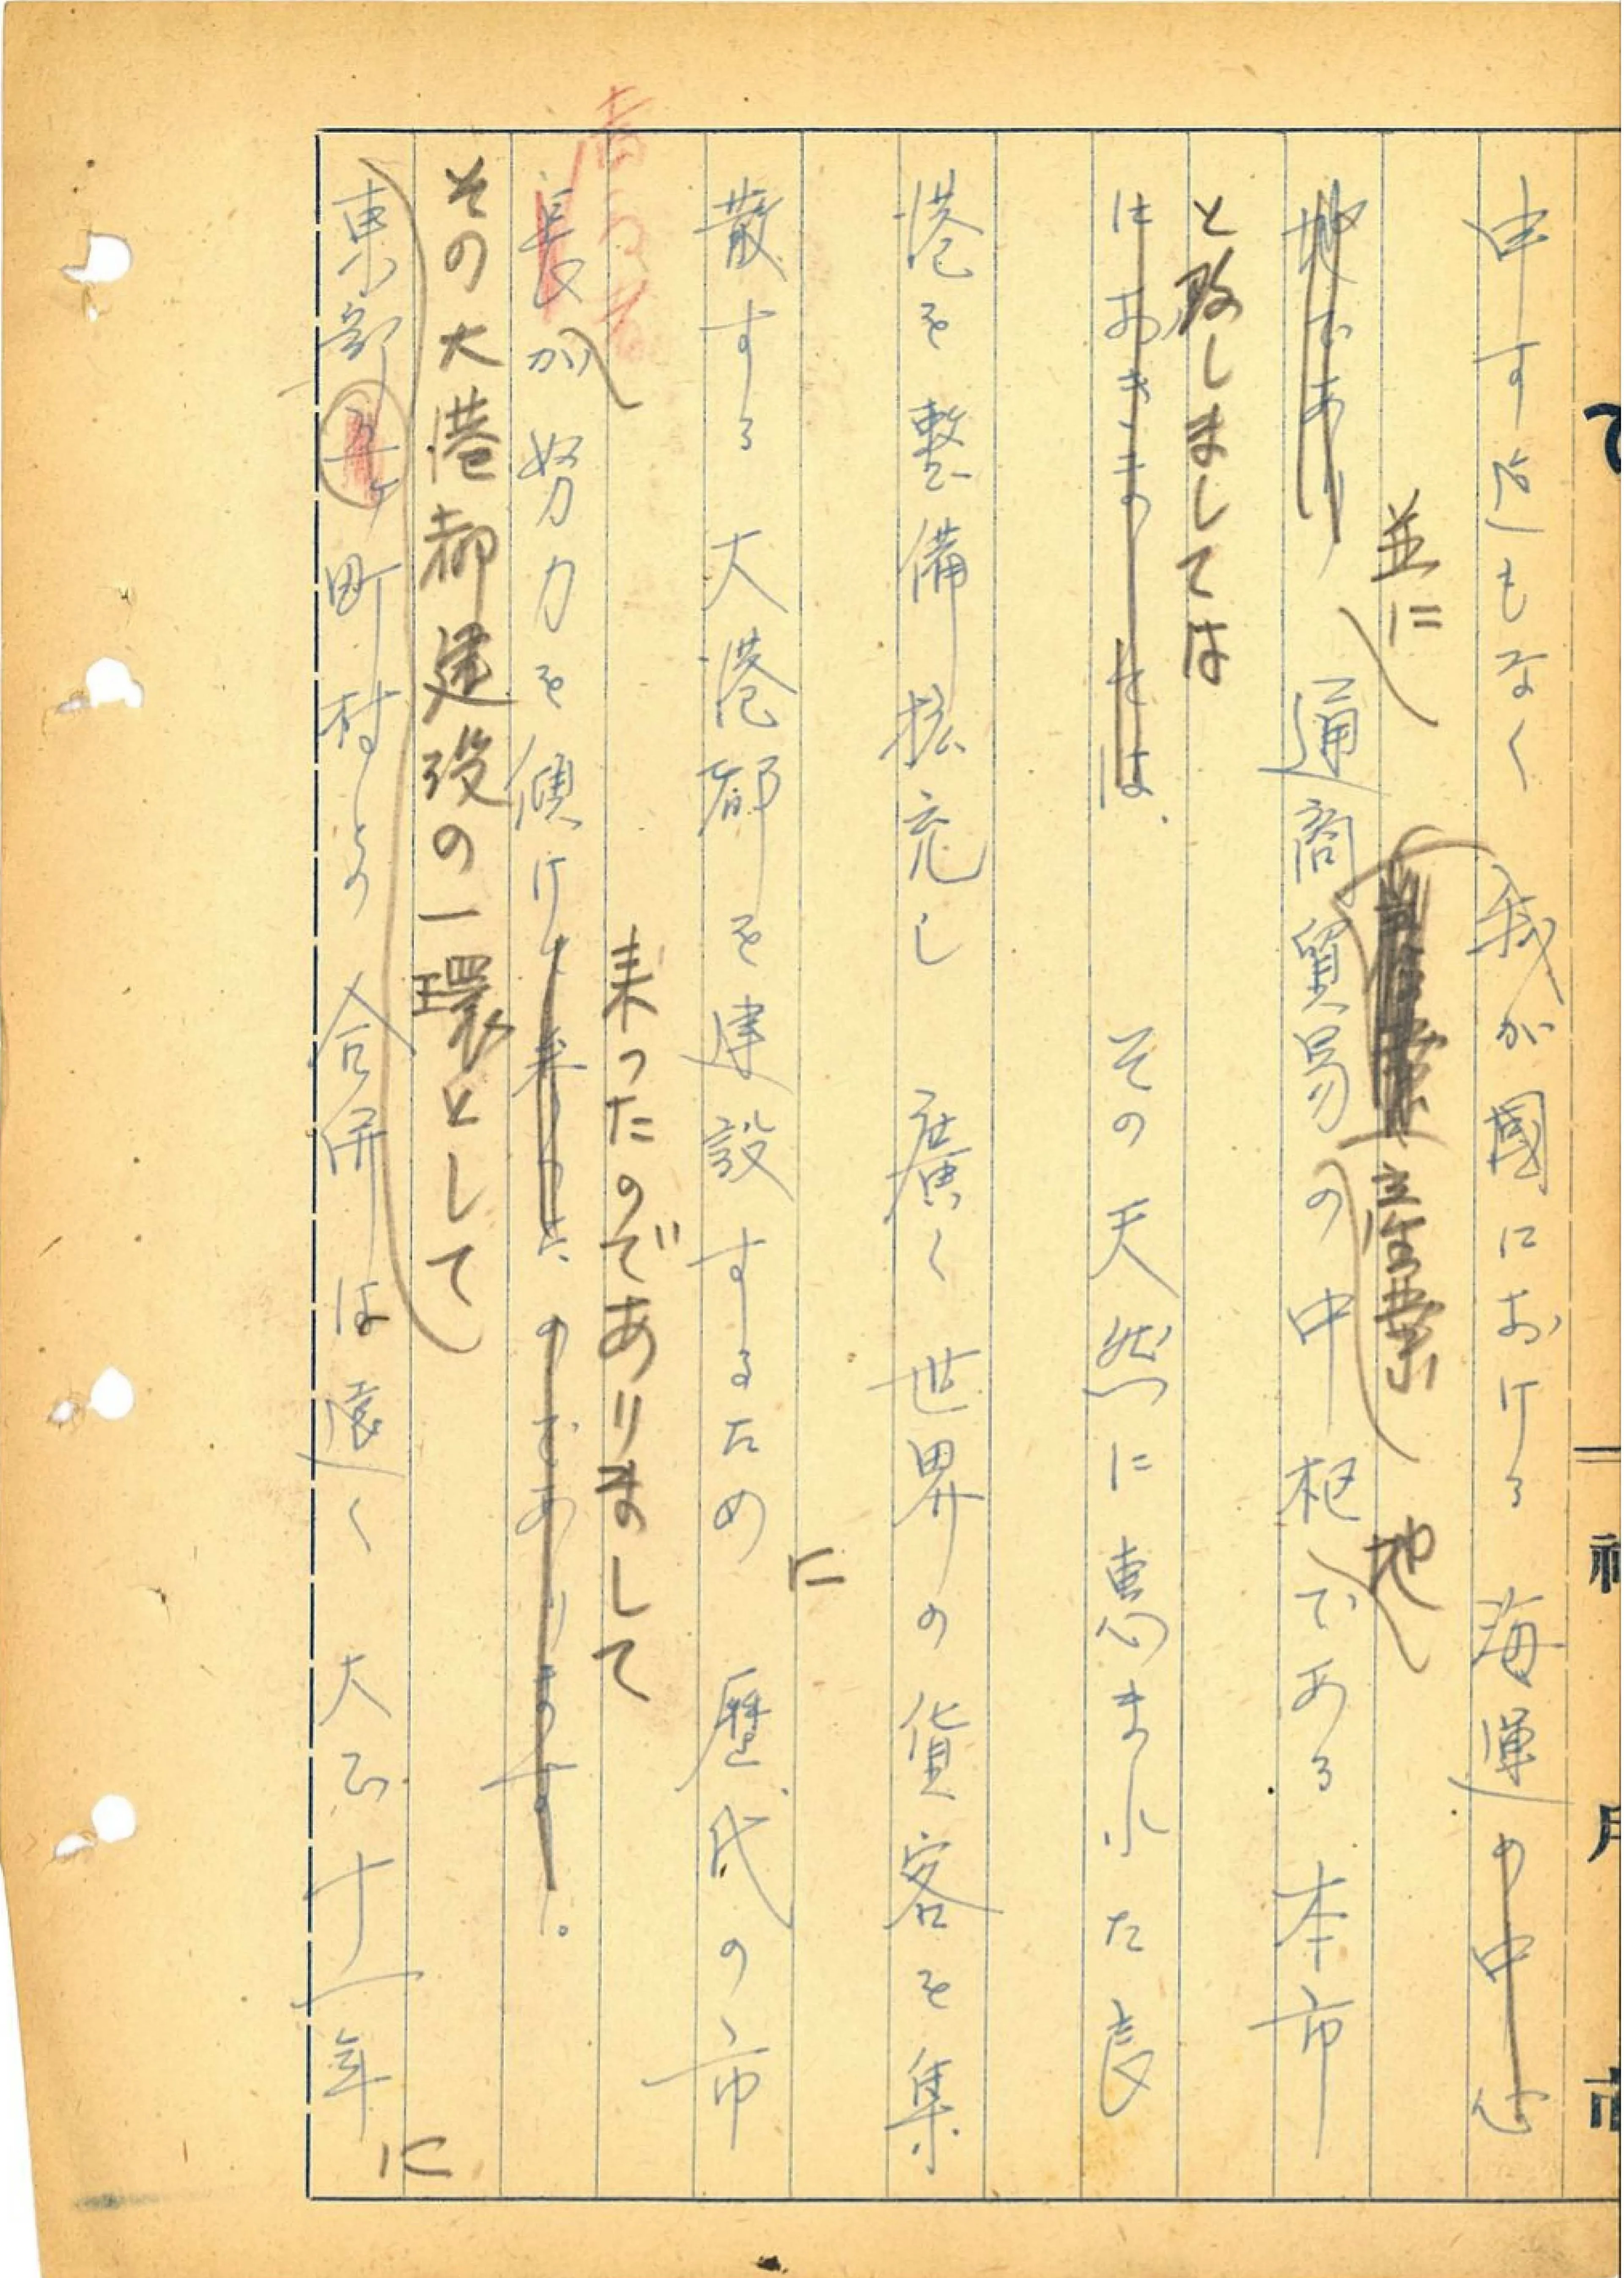 申す迄もなく 我が國における 海運の中心
並に 産業 地
地であり 通商貿易の中枢である 本市
と致しましては
におきましては、 その天然に恵まれた良
港を整備拡充し 廣く世界の貨客を集
に
散する 大港都を建設するため 歴代の市
来ったのでありまして
長が努力を傾けて来ったのであります。
その大港都建設の一環として
東部 町村との合併は遠く 大正十一年
に